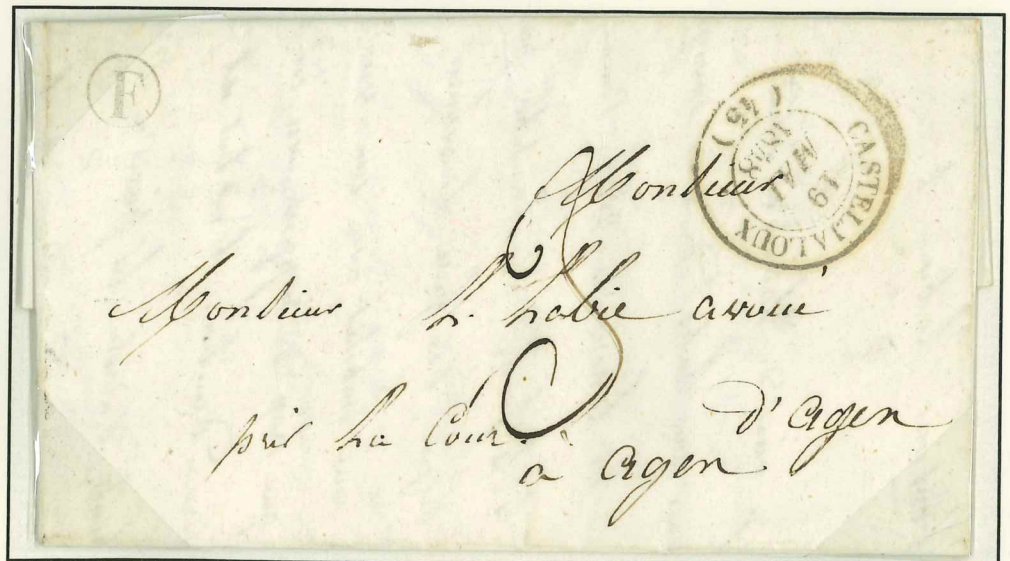 F
CASTELJALOUX
(45)
19
MAI
Monsieur
3
Monsieur h. habie avoué
près La Cour d'agen
à agen